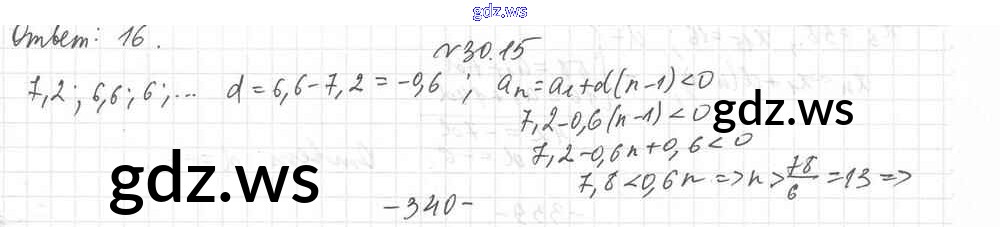 gdz.ws
Ответ: 16.
№30.15
7,2; 6,6; 6; ... d = 6,6 - 7,2 = -0,6; aₙ = a₁ + d(n-1) < 0
7,2 - 0,6(n-1) < 0
gdz.ws
7,2 - 0,6n + 0,6 < 0
gdz.ws
7,8 < 0,6n => n > 78/6 = 13 =>
-340-